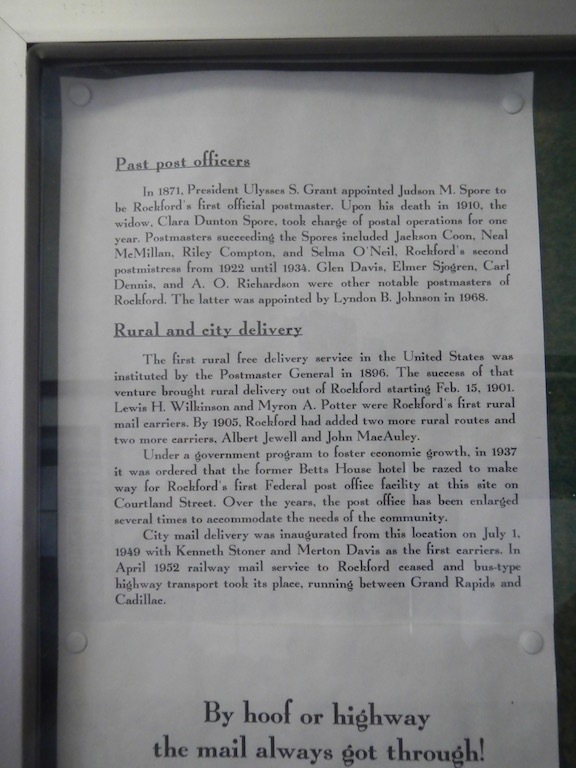 Past post officers
In 1871, President Ulysses S. Grant appointed Judson M. Spore to
be Rockford's first official postmaster. Upon his death in 1910, the
widow, Clara Dunton Spore, took charge of postal operations for one
year. Postmasters succeeding the Spores included Jackson Coon, Neal
McMillan, Riley Compton, and Selma O'Neil, Rockford's second
postmistress from 1922 until 1934. Glen Davis, Elmer Sjogren, Carl
Dennis, and A. O. Richardson were other notable postmasters of
Rockford. The latter was appointed by Lyndon B. Johnson in 1968.
Rural and city delivery
The first rural free delivery service in the United States was
instituted by the Postmaster General in 1896. The success of that
venture brought rural delivery out of Rockford starting Feb. 15, 1901.
Lewis H. Wilkinson and Myron A. Potter were Rockford's first rural
mail carriers. By 1905, Rockford had added two more rural routes and
two more carriers, Albert Jewell and John MacAuley.
Under a government program to foster economic growth, in 1937
it was ordered that the former Betts House hotel be razed to make
way for Rockford's first Federal post office facility at this site on
Courtland Street. Over the years, the post office has been enlarged
several times to accommodate the needs of the community.
City mail delivery was inaugurated from this location on July 1,
1949 with Kenneth Stoner and Merton Davis as the first carriers. In
April 1952 railway mail service to Rockford ceased and bus-type
highway transport took its place, running between Grand Rapids and
Cadillac.
By hoof or highway
the mail always got through!